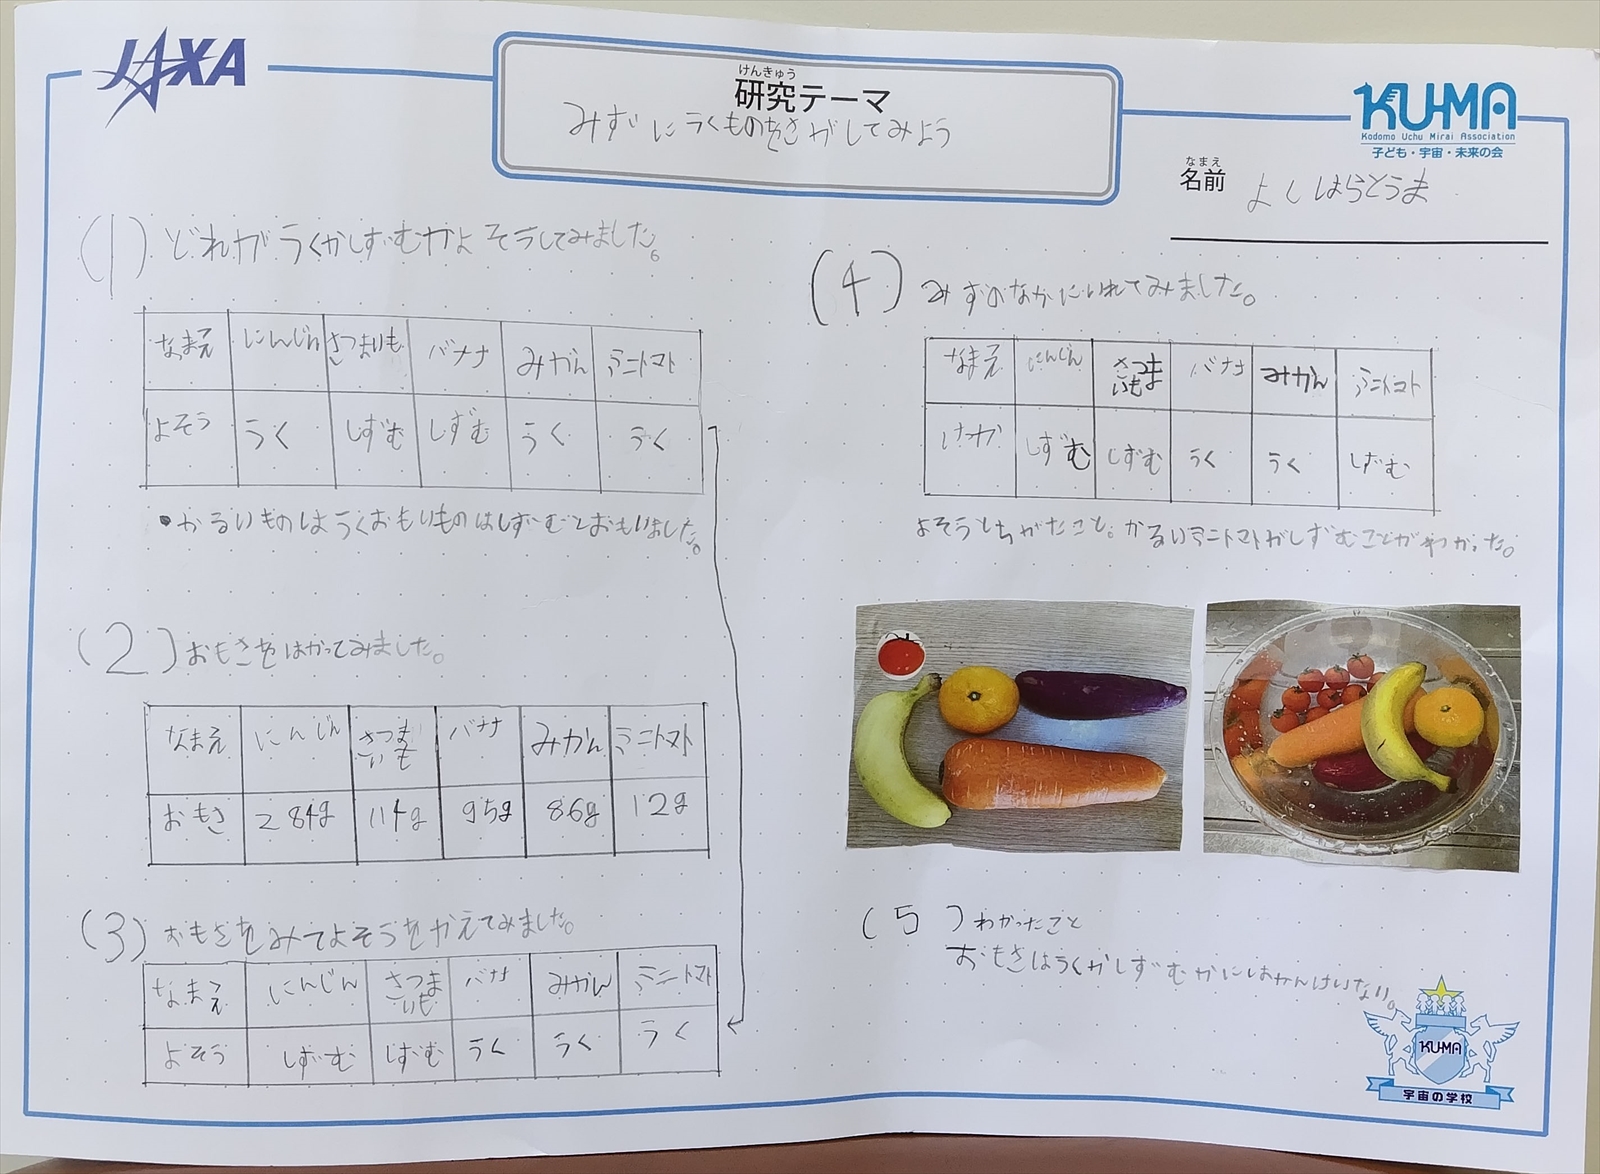 JAXA
けんきゅう
研究テーマ
みずにうくものをさがしてみよう
KU-MA
Kodomo Uchu Mirai Association
子ども・宇宙・未来の会
なまえ
名前 よしはらとうま
(1) どれがうくかしずむかよそうしてみました。
なまえ にんじん さつまいも バナナ みかん ミニトマト
よそう うく しずむ しずむ うく うく
・かるいものはうくおもいものはしずむとおもいました。
(2) おもさをはかってみました。
なまえ にんじん さつまいも バナナ みかん ミニトマト
おもさ 284g 114g 95g 86g 12g
(3) おもさをみてよそうをかえてみました。
なまえ にんじん さつまいも バナナ みかん ミニトマト
よそう しずむ しずむ うく うく うく
(4) みずのなかにいれてみました。
なまえ にんじん さつまいも バナナ みかん ミニトマト
けっか しずむ しずむ うく うく しずむ
よそうとちがたこと。かるいミニトマトがしずむことがわかった。
(5) わかったこと
おもさはうくかしずむかにはかんけいない。
KU-MA
宇宙の学校